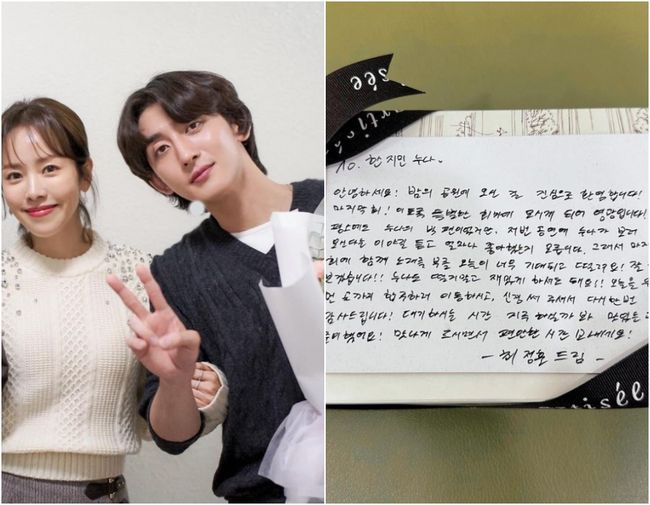 sée
artisée
To. 한 지민 누나.
안녕하세요! 밤의 공원에 오신 걸 진심으로 환영합니다!
마지막회! 이토록 특별한 회차에 모시게 되어 영광입니다!
평소에도 누나의 팬이었지만, 저번 공연에 누나가 보러
오신다는 이야길 듣고 얼마나 좋아했는지 모릅니다. 그래서 마지
회에 함께 노래를 부를 오늘이 너무 기대되고 떨려요! 잘
보겠습니다!! 누나도 떨지말고 재밌게 하셔도 돼요!! 오늘을
먼 곳까지 합주하러 이동하시고, 신경 써 주셔서 다시 한번
감사드립니다! 대기하시는 시간 지루하실까 봐 맛있는
준비했어요! 맛나게 드시면서 편안한 시간 보내세요!
- 최 정훈 드림 -
isée